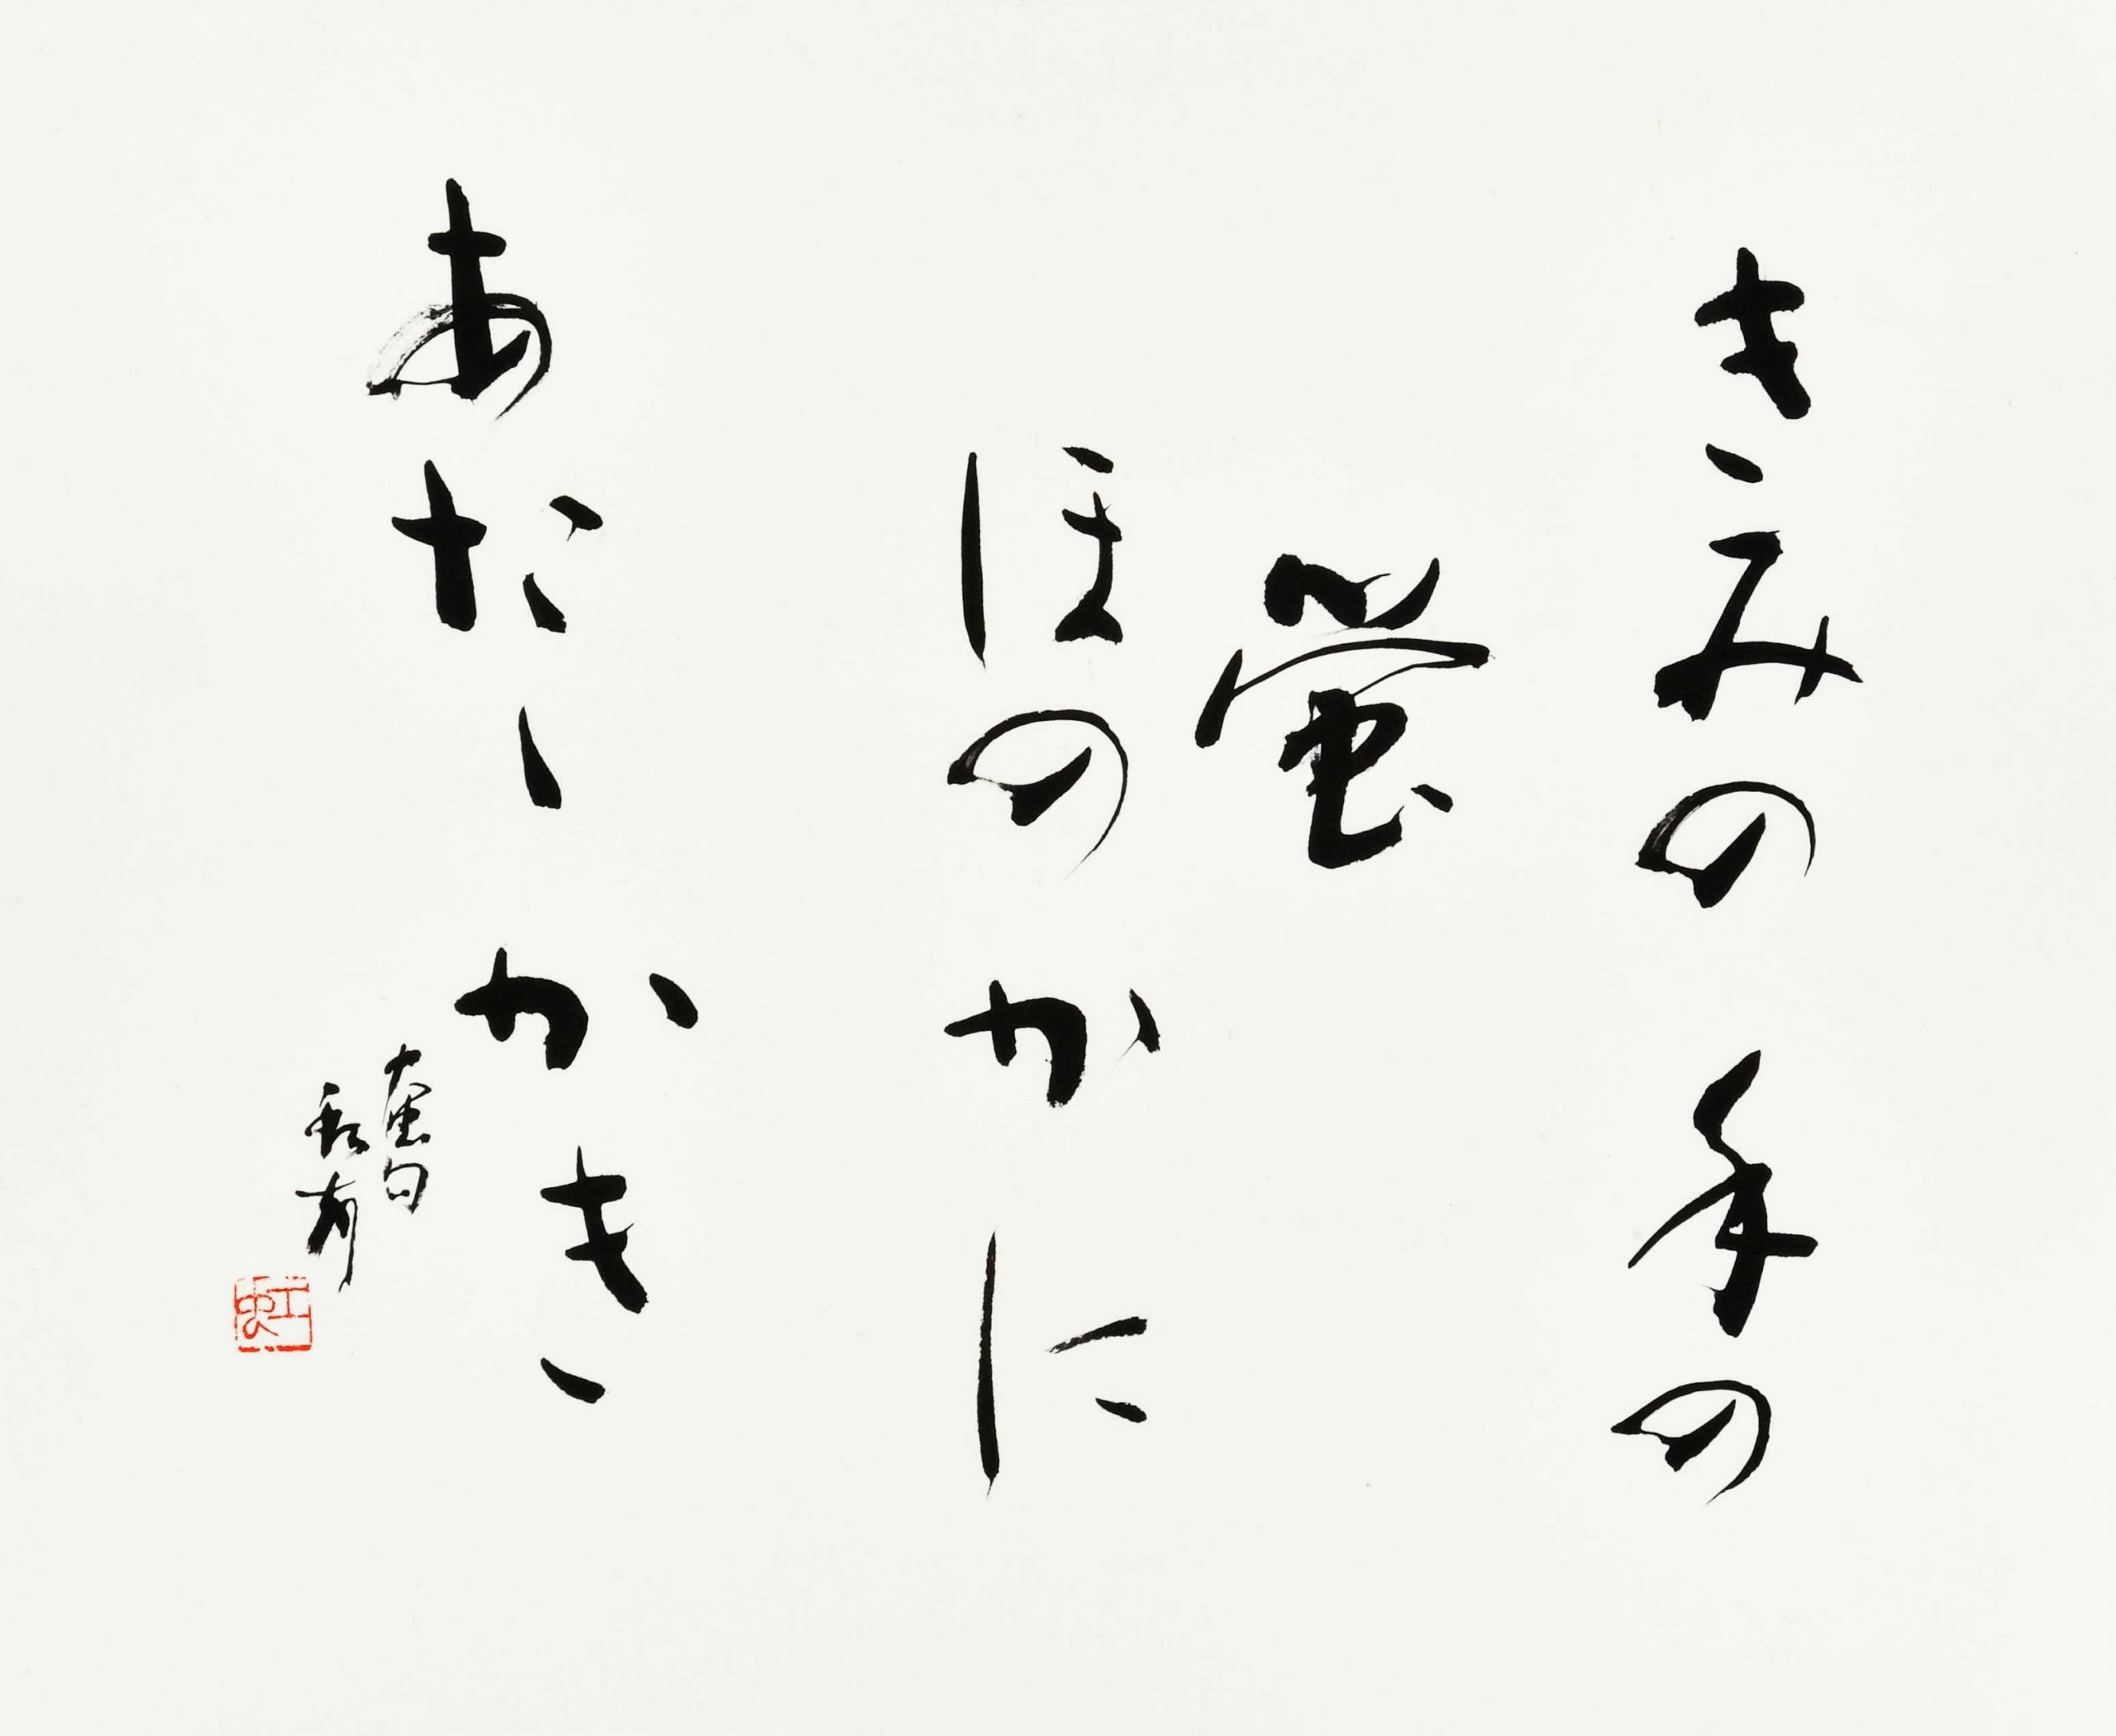 きみの手の
蛍
ほのかに
あたゝかき